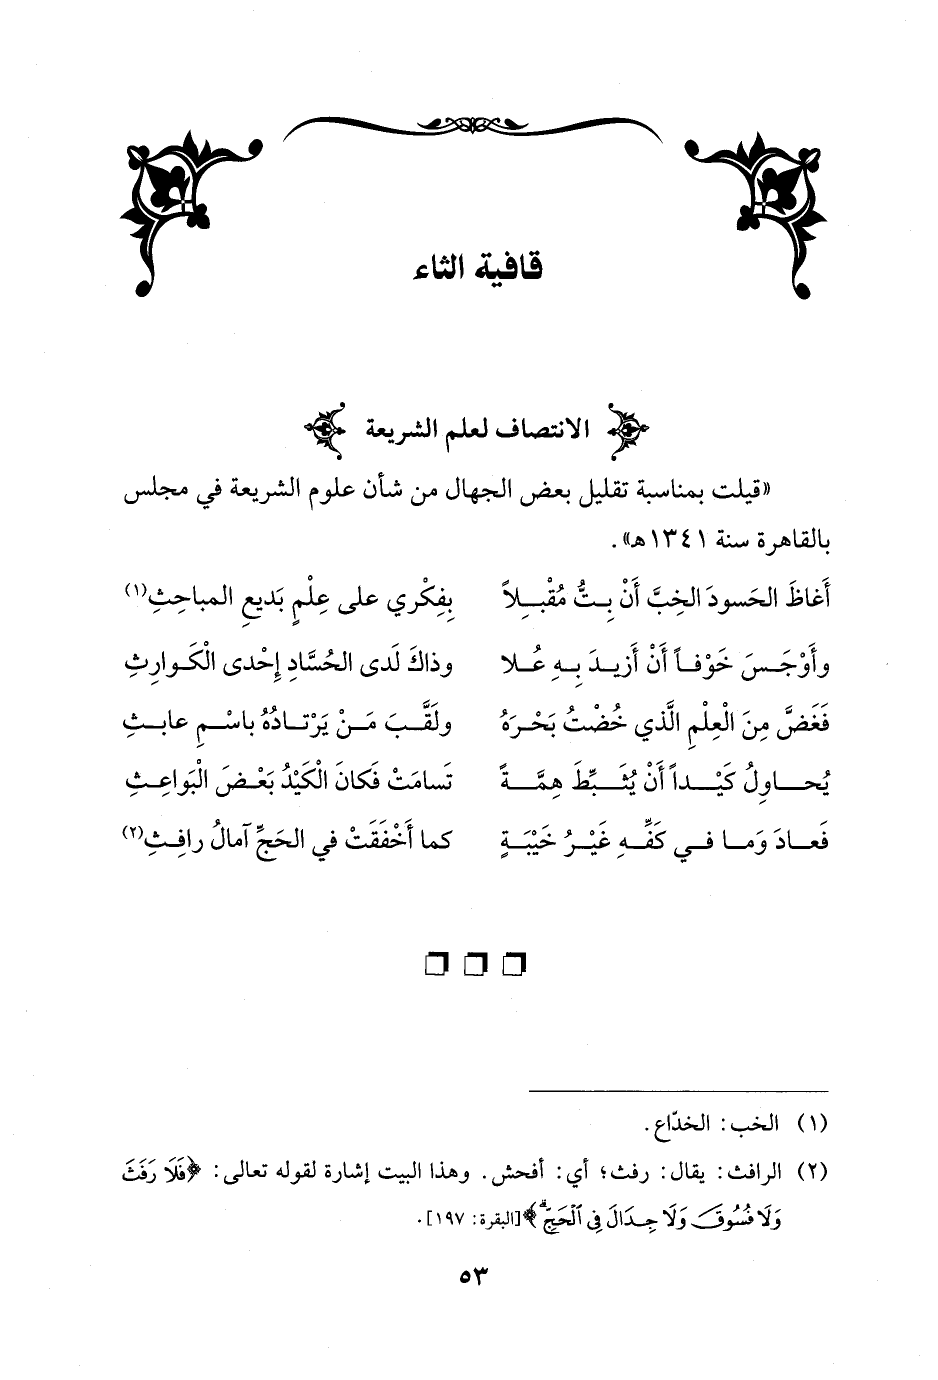 قافية الثاء
الانتصاف لعلم الشريعة
«قيلت بمناسبة تقليل بعض الجهال من شأن علوم الشريعة في مجلس
بالقاهرة سنة ١٣٤١هـ».
أَغاظَ الحَسودَ الخِبَّ أَنْ بِتُّ مُقْبِلاً بِفِكْري على عِلْمٍ بَديعِ المباحِثِ(١)
وأَوْجَسَ خَوْفاً أَنْ أَزيدَ بِهِ عُلا وذاكَ لَدى الحُسَّادِ إِحْدى الْكَوارِثِ
فَغَضَّ مِنَ الْعِلْمِ الَّذي خُضْتُ بَحْرَهُ ولَقَّبَ مَنْ يَرْتادُهُ باسْمِ عابثِ
يُحاوِلُ كَيْداً أَنْ يُثَبِّطَ هِمَّةً تَسامَتْ فَكانَ الْكَيْدُ بَعْضَ الْبَواعِثِ
فَعادَ وَما في كَفِّهِ غَيْرُ خَيْبَةٍ كما أَخْفَقَتْ في الحَجِّ آمالُ رافِثِ(٢)
(١) الخب: الخدّاع.
(٢) الرافث: يقال: رفث؛ أي: أفحش. وهذا البيت إشارة لقوله تعالى: ﴿فَلَا رَفَثَ
وَلَا فُسُوقَ وَلَا جِدَالَ فِي ٱلْحَجِّ﴾ [البقرة: ١٩٧].
٥٣